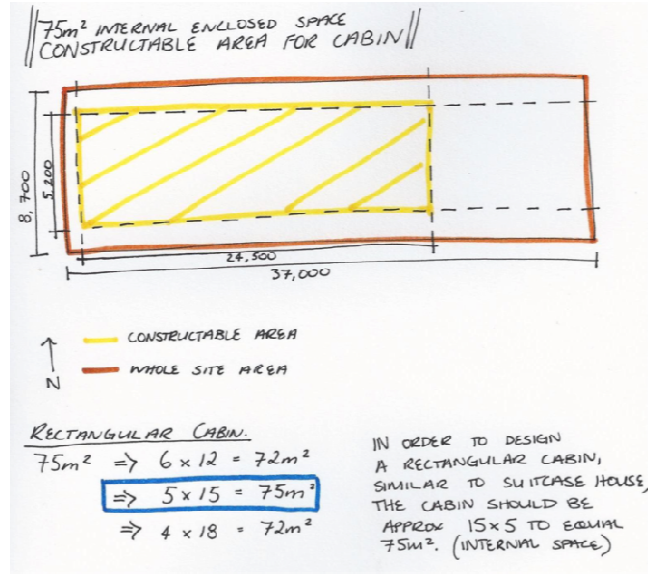 75m² INTERNAL ENCLOSED SPACE
CONSTRUCTABLE AREA FOR CABIN
8,700
5,200
24,500
37,000
N
CONSTRUCTABLE AREA
WHOLE SITE AREA
RECTANGULAR CABIN.
75m² ⇒ 6 x 12 = 72m²
⇒ 5 x 15 = 75m²
⇒ 4 x 18 = 72m²
IN ORDER TO DESIGN
A RECTANGULAR CABIN,
SIMILAR TO SUITCASE HOUSE,
THE CABIN SHOULD BE
APPROX 15x5 TO EQUAL
75m². (INTERNAL SPACE)